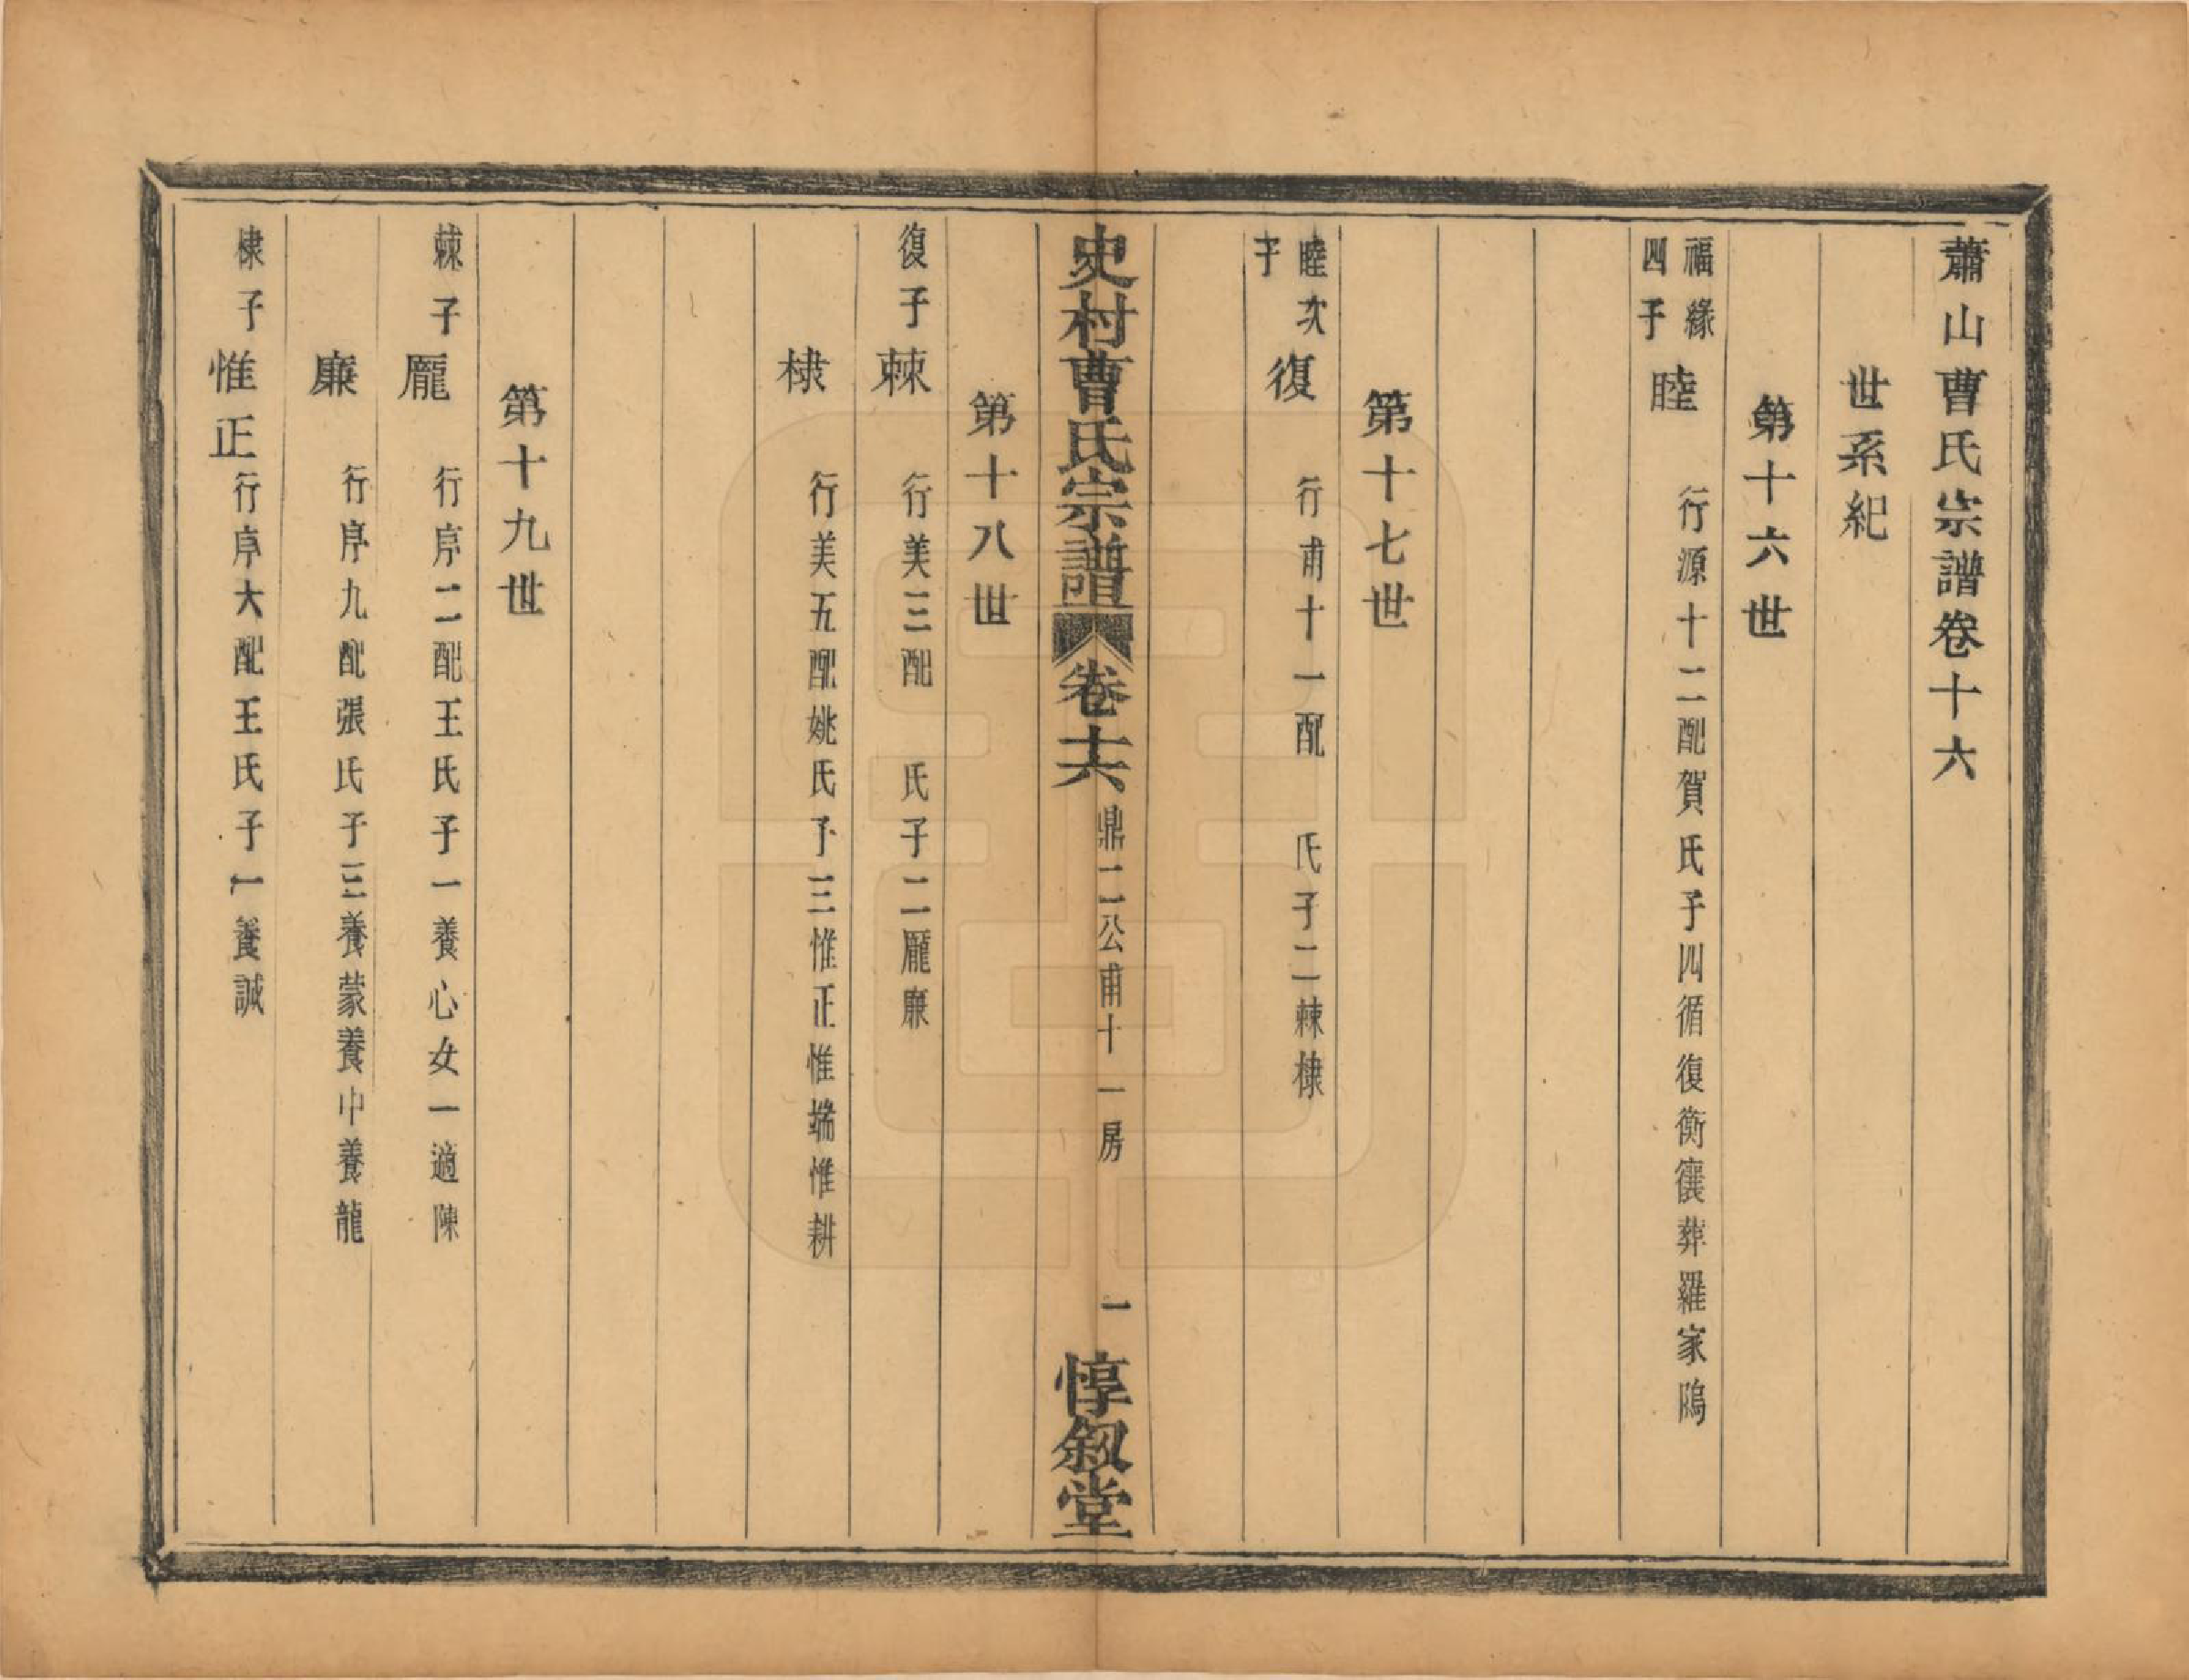 蕭山曹氏宗譜卷十六
世系紀
第十六世
福緣
四子
睦
行源十二配賀氏子四循復衡儴葬羅家隖
第十七世
睦次
子
復
行甫十一配　氏子二棘棣
史村曹氏宗譜
卷十六
鼎二公甫十一房
一
惇叙堂
第十八世
復子
棘
行美三配　氏子二龎廉
棣
行美五配姚氏子三惟正惟端惟耕
第十九世
棘子
龎
行序二配王氏子一養心女一適陳
廉
行序九配張氏子三養蒙養中養龍
棣子
惟正
行序大配王氏子一養誠